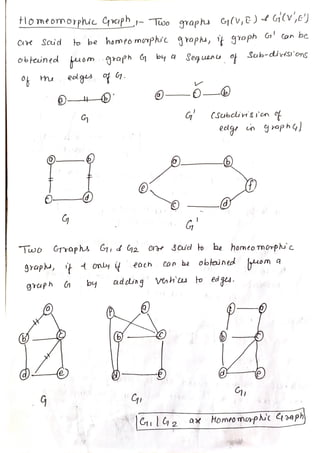 Homeomorphic Graph :- Two graphs G(V,E) & G'(V',E')
are said to be homeomorphic graphs, if graph G' can be
obtained from graph G by a sequence of sub-divisions
of the edges of G.
a b a b
G G' (subdivision of
edge in graph G)
a b a b
e f
c d c d
G G'
Two Graphs G1 & G2 are said to be homeomorphic
graphs, if & only if each can be obtained from a
graph G by adding vertices to edges.
a f a f a
b c b c b c
d e d e d e
G G1 G1
G1 | G2 are Homeomorphic Graph